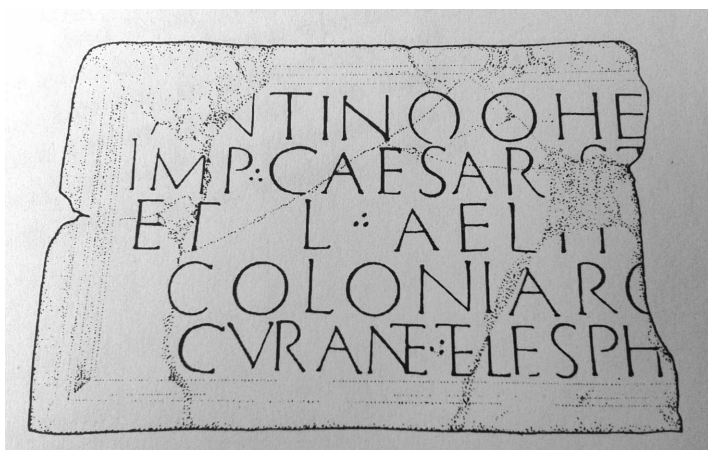 ANTINOO HE
IMP∴CAESAR
ET L ∴ AELII
COLONIA RO
CVRANTE∴TELESPH